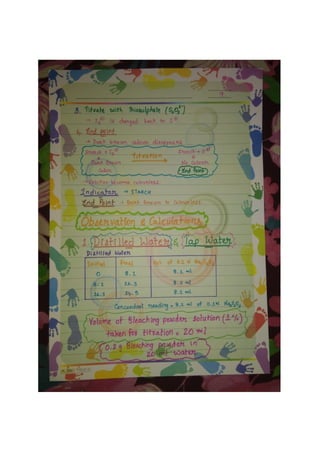 3. Titrate with Thiosulphate (S₂O₃²⁻)
→ I₂ is changed back to I⁻
4. End point
→ Dark brown colour disappears
Starch + I₂
Starch + I⁻
Titration
Dark Brown
No Colour
Colour
End Point
Solution become colourless
Indicator → STARCH
End Point → Dark Brown to Colourless
Observation & Calculations
1. Distilled Water & Tap Water
Distilled Water
Initial Final Vol. of 0.1 N Na₂S₂O₃
0 8.1 8.1 ml
8.1 16.3
16.3 8.1 ml
Concordant reading = 8.1 ml of 0.1 N Na₂S₂O₃
Volume of Bleaching powder solution (1%)
taken for titration = 20 ml
0.2 g Bleaching powder in
20 ml water